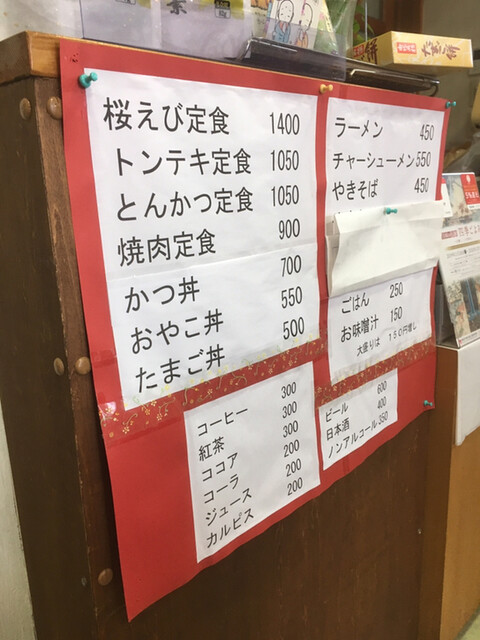 桜えび定食 1400
トンテキ定食 1050
とんかつ定食 1050
焼肉定食 900
かつ丼 700
おやこ丼 550
たまご丼 500
ラーメン 450
チャーシューメン 550
やきそば 450
ごはん 250
お味噌汁 150
大盛りは 150円増し
コーヒー 300
紅茶 300
ココア 300
コーラ 200
ジュース 200
カルピス 200
ビール 600
日本酒 400
ノンアルコール 350